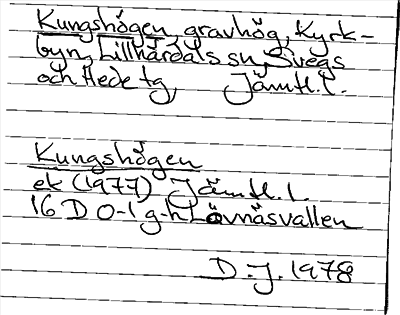 Kungshögen, gravhög, Kyrk-
byn, Lillhärdals sn, Svegs
och Hede tg, Jämtl. l.
Kungshögen
ek (1977) Jämtl. l.
16 D 0-1 g-h Lövnäsvallen
D. J. 1978